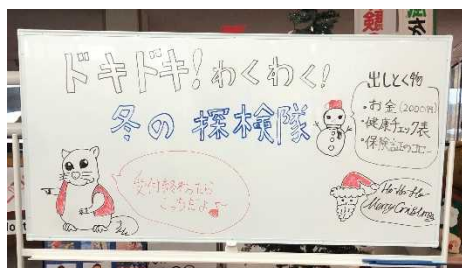 ドキドキ!わくわく!
冬の探検隊
出しとく物
・お金(2000円)
・健康チェック表
・保険証のコピー
受付終わったら
こっちだよ〜
Ho Ho Ho
Merry Cristmas